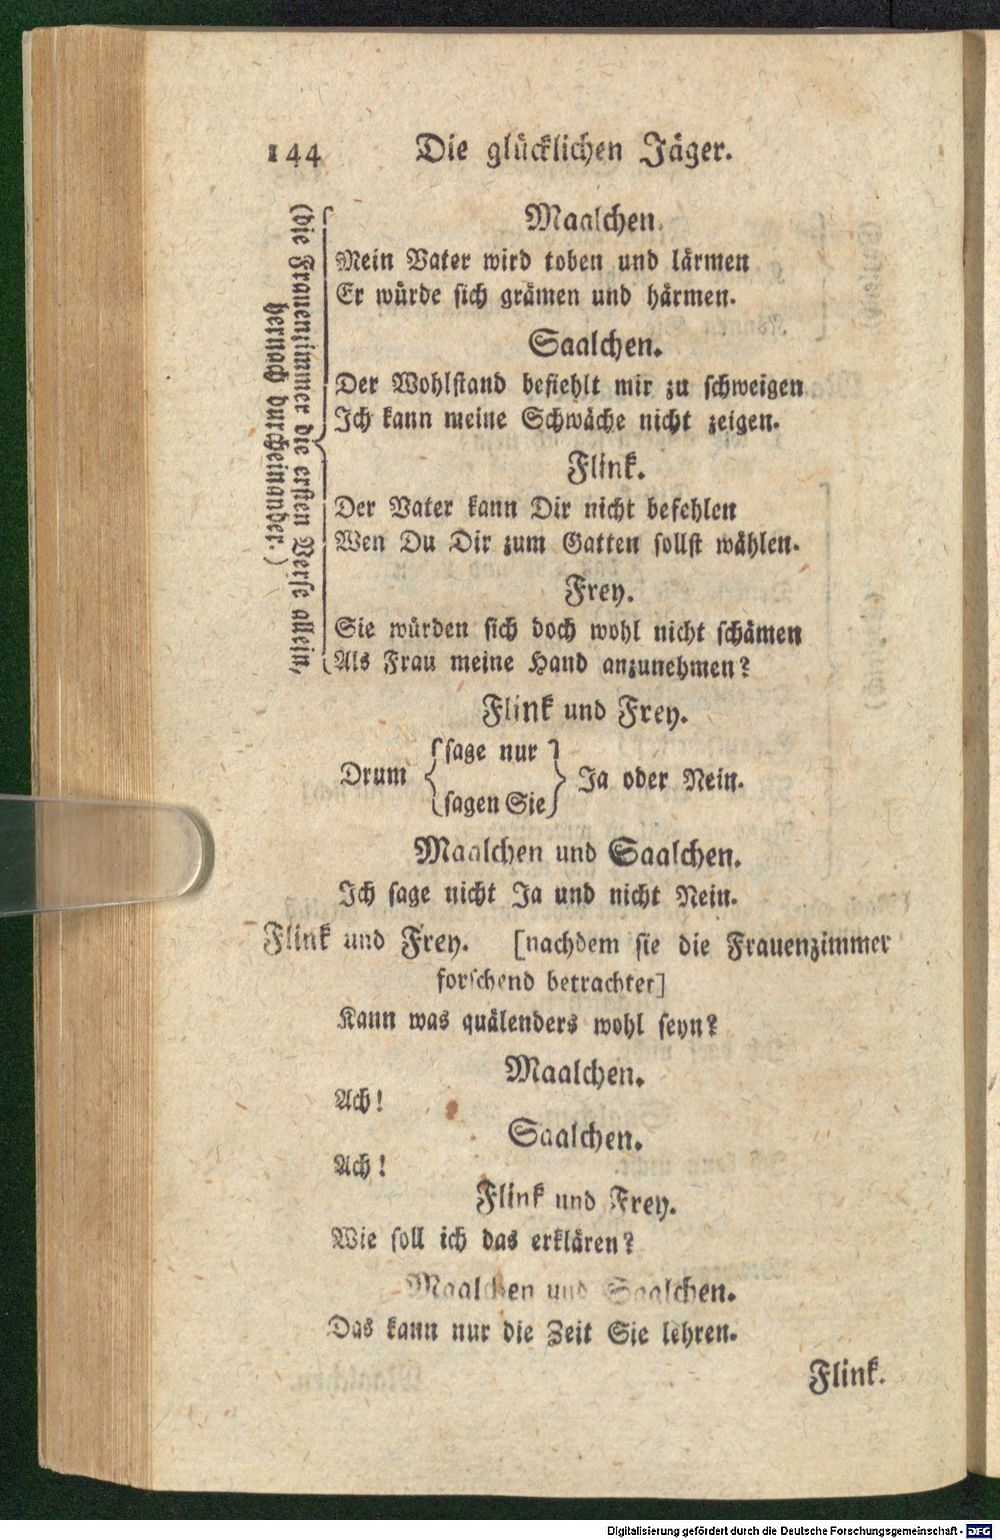 144 Die glücklichen Jäger.
(die Frauenzimmer die ersten Verse allein,
hernach durcheinander.)
Maalchen.
Mein Vater wird toben und lärmen
Er würde sich grämen und härmen.
Saalchen.
Der Wohlstand befiehlt mir zu schweigen
Ich kann meine Schwäche nicht zeigen.
Flink.
Der Vater kann Dir nicht befehlen
Wen Du Dir zum Gatten sollst wählen.
Frey.
Sie würden sich doch wohl nicht schämen
Als Frau meine Hand anzunehmen?
Flink und Frey.
Drum {sage nur / sagen Sie} Ja oder Nein.
Maalchen und Saalchen.
Ich sage nicht Ja und nicht Nein.
Flink und Frey. [nachdem sie die Frauenzimmer
forschend betrachtet]
Kann was quälenders wohl seyn?
Maalchen.
Ach!
Saalchen.
Ach!
Flink und Frey.
Wie soll ich das erklären?
Maalchen und Saalchen.
Das kann nur die Zeit Sie lehren.
Flink.
Digitalisierung gefördert durch die Deutsche Forschungsgemeinschaft - DFG